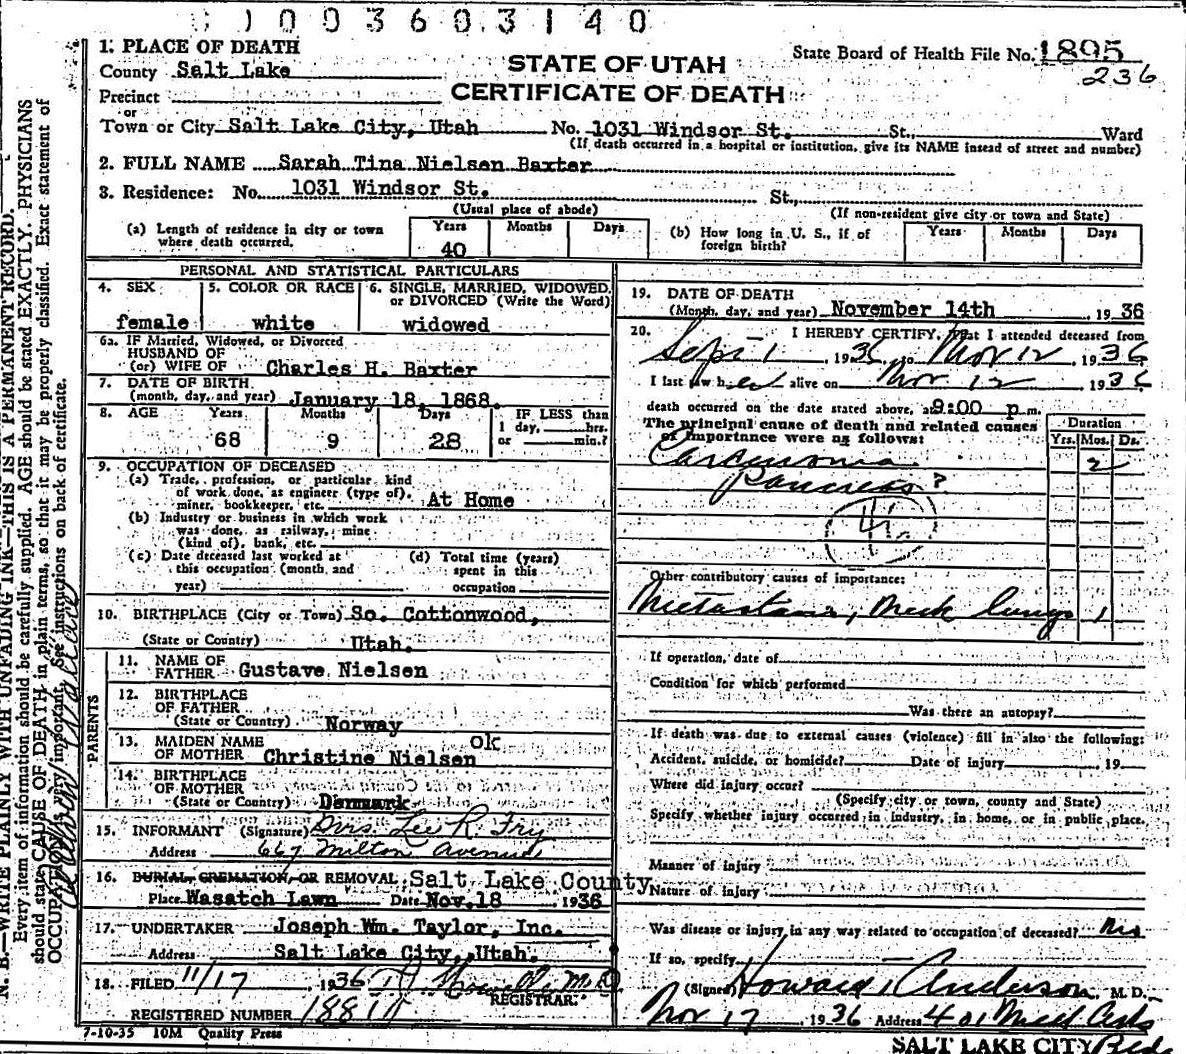 0093603140
1. PLACE OF DEATH
County Salt Lake
Precinct
or
Town or City Salt Lake City, Utah No. 1031 Windsor St. St., Ward
(If death occurred in a hospital or institution, give its NAME instead of street and number)
STATE OF UTAH
CERTIFICATE OF DEATH
State Board of Health File No. 1895
236
2. FULL NAME Sarah Tina Nielsen Baxter
3. Residence: No. 1031 Windsor St. St.,
(Usual place of abode) (If non-resident give city or town and State)
(a) Length of residence in city or town where death occurred. Years 40 Months Days
(b) How long in U. S., if of foreign birth? Years Months Days
PERSONAL AND STATISTICAL PARTICULARS
4. SEX female
5. COLOR OR RACE white
6. SINGLE, MARRIED, WIDOWED, or DIVORCED (Write the Word) widowed
6a. IF Married, Widowed, or Divorced
HUSBAND OF
(or) WIFE OF Charles H. Baxter
7. DATE OF BIRTH
(month, day, and year) January 18, 1868.
8. AGE Years 68 Months 9 Days 28 IF LESS than 1 day, hrs. or min.?
9. OCCUPATION OF DECEASED
(a) Trade, profession, or particular kind
of work done, as engineer (type of),
miner, bookkeeper, etc. At Home
(b) Industry or business in which work
was done, as railway, mine
(kind of), bank, etc.
(c) Date deceased last worked at this occupation (month, and year)
(d) Total time (years) spent in this occupation
10. BIRTHPLACE (City or Town) So. Cottonwood,
(State or Country) Utah.
PARENTS
11. NAME OF FATHER Gustave Nielsen
12. BIRTHPLACE OF FATHER
(State or Country) Norway
13. MAIDEN NAME OF MOTHER Christine Nielsen ok
14. BIRTHPLACE OF MOTHER
(State or Country) Denmark
15. INFORMANT (Signature) Mrs. Lee R. Fry
Address 667 Milton Avenue
16. BURIAL, CREMATION, OR REMOVAL Salt Lake County
Place Wasatch Lawn Date Nov. 18 1936
17. UNDERTAKER Joseph Wm. Taylor, Inc.
Address Salt Lake City, Utah.
18. FILED 11/17, 1936 M.D.
REGISTRAR.
REGISTERED NUMBER 1881
7-10-35 10M Quality Press
19. DATE OF DEATH
(Month, day, and year) November 14th 1936
20. I HEREBY CERTIFY, that I attended deceased from
Sept 1, 1936, to Nov 12 1936
I last saw her alive on Nov. 12, 1936
death occurred on the date stated above, at 9:00 p.m.
The principal cause of death and related causes
of importance were as follows:
Duration
Yrs. Mos. Ds.
Carcinoma 2
Pancreas?
Other contributory causes of importance:
Metastasis, Neck lungs 1
If operation, date of
Condition for which performed
Was there an autopsy?
If death was due to external causes (violence) fill in also the following:
Accident, suicide, or homicide? Date of injury 19
Where did injury occur?
(Specify city or town, county and State)
Specify whether injury occurred in industry, in home, or in public place.
Manner of injury
Nature of injury
Was disease or injury in any way related to occupation of deceased? No
If so, specify
(Signed) Howard Anderson, M. D.
Nov 17, 1936 Address 401 Med Arts Bldg
SALT LAKE CITY
N. B.—WRITE PLAINLY WITH UNFADING INK—THIS IS A PERMANENT RECORD.
Every item of information should be carefully supplied. AGE should be stated EXACTLY. PHYSICIANS
should state CAUSE OF DEATH in plain terms, so that it may be properly classified. Exact statement of
OCCUPATION very important. See instructions on back of certificate.